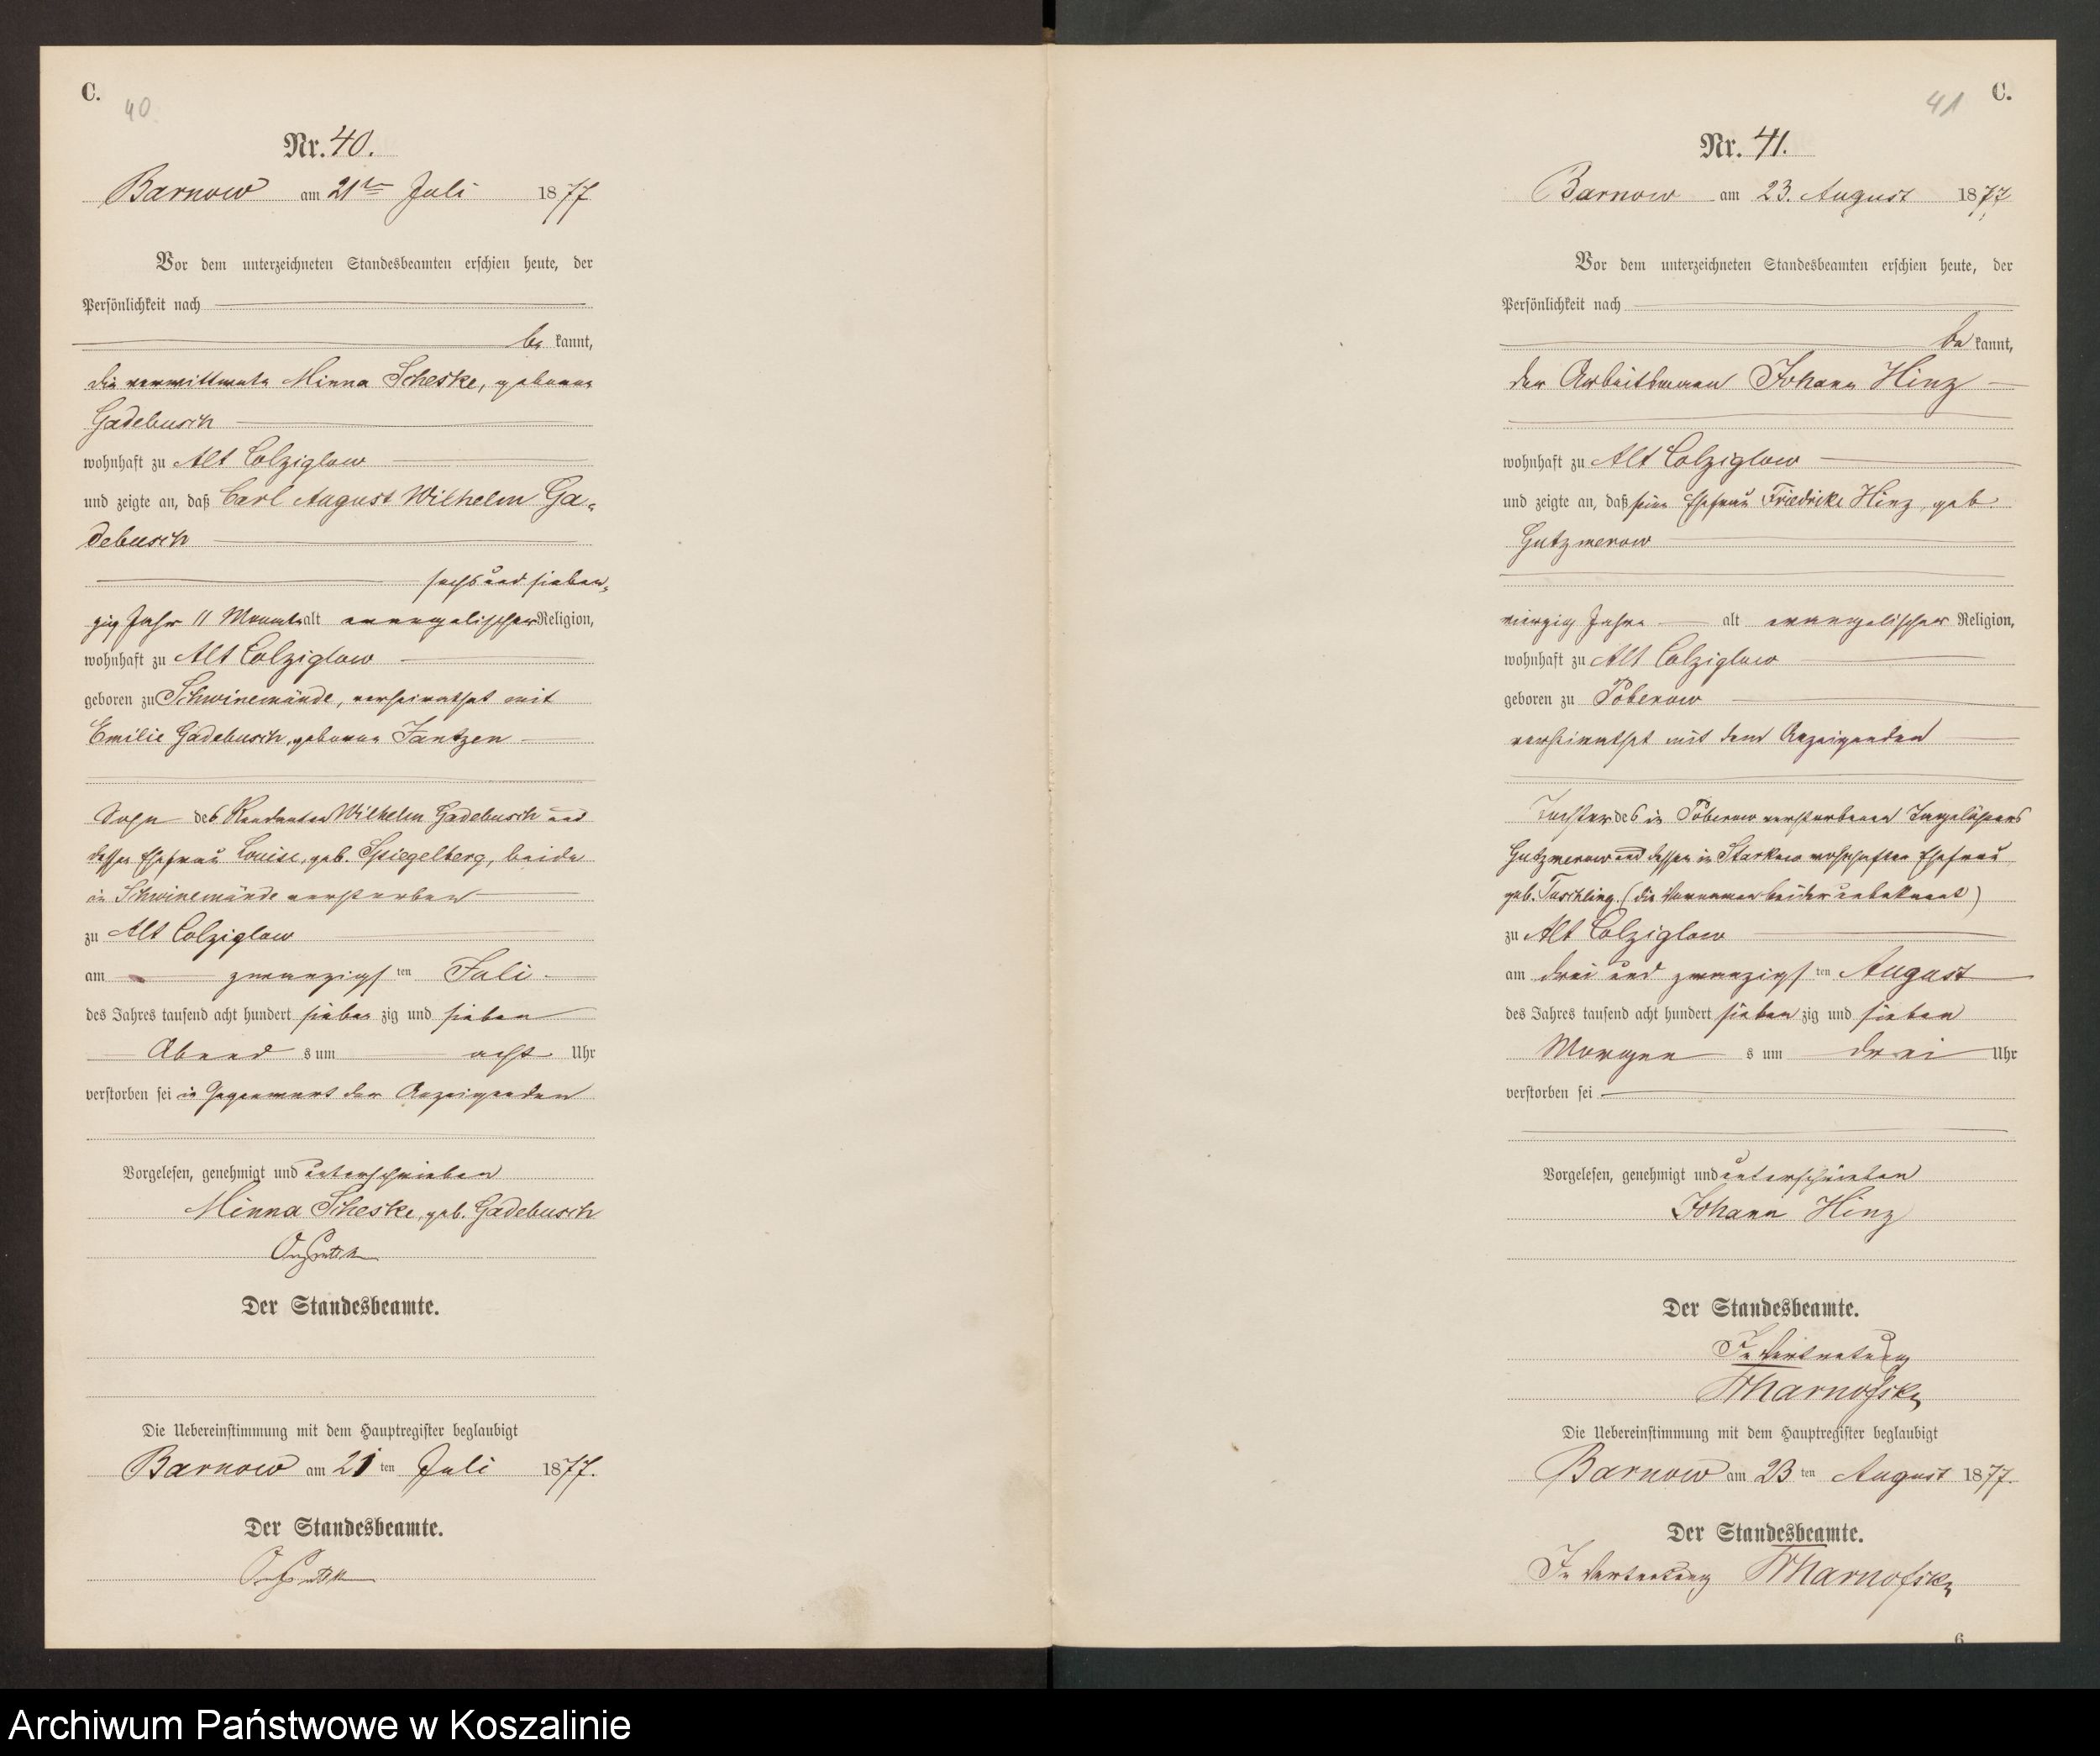 C.
40
Nr. 40.
Barnow am 21ten Juli 1877
Vor dem unterzeichneten Standesbeamten erschien heute, der
Persönlichkeit nach
be kannt,
die verwittwete Minna Scheske, geborene
Gadebusch
wohnhaft zu Alt Colziglow
und zeigte an, daß Carl August Wilhelm Ga-
debusch
sechs und sieben-
zig Jahr 11 Monate alt evangelischer Religion,
wohnhaft zu Alt Colziglow
geboren zu Schwinemünde, verheirathet mit
Emilie Gadebusch, geborene Jantzen
Sohn des Rendanten Wilhelm Gadebusch und
dessen Ehefrau Louise, geb. Spiegelberg, beide
in Schwinemünde verstorben
zu Alt Colziglow
am zwanzigs ten Juli
des Jahres tausend acht hundert sieben zig und sieben
Abend s um acht Uhr
verstorben sei in Gegenwart der Anzeigenden
Vorgelesen, genehmigt und unterschrieben
Minna Scheske, geb. Gadebusch
Der Standesbeamte.
Die Uebereinstimmung mit dem Hauptregister beglaubigt
Barnow am 21 ten Juli 1877.
Der Standesbeamte.
C.
41
Nr. 41.
Barnow am 23. August 1877
Vor dem unterzeichneten Standesbeamten erschien heute, der
Persönlichkeit nach
be kannt,
der Arbeitsmann Johann Hinz
wohnhaft zu Alt Colziglow
und zeigte an, daß seine Ehefrau Friedricke Hinz, geb.
Gutzmerow
vierzig Jahre alt evangelischer Religion,
wohnhaft zu Alt Colziglow
geboren zu Poberow
verheirathet mit dem Anzeigenden
Tochter des in Poberow verstorbenen Tagelöhners
Gutzmerow und dessen in Starkow wohnhaften Ehefrau
geb. Taschling. (die Vornamen beider unbekannt)
zu Alt Colziglow
am drei und zwanzigs ten August
des Jahres tausend acht hundert sieben zig und sieben
Morgen s um drei Uhr
verstorben sei
Vorgelesen, genehmigt und unterschrieben
Johann Hinz
Der Standesbeamte.
In Vertretung
Die Uebereinstimmung mit dem Hauptregister beglaubigt
Barnow am 23 ten August 1877.
Der Standesbeamte.
In Vertretung
6
Archiwum Państwowe w Koszalinie